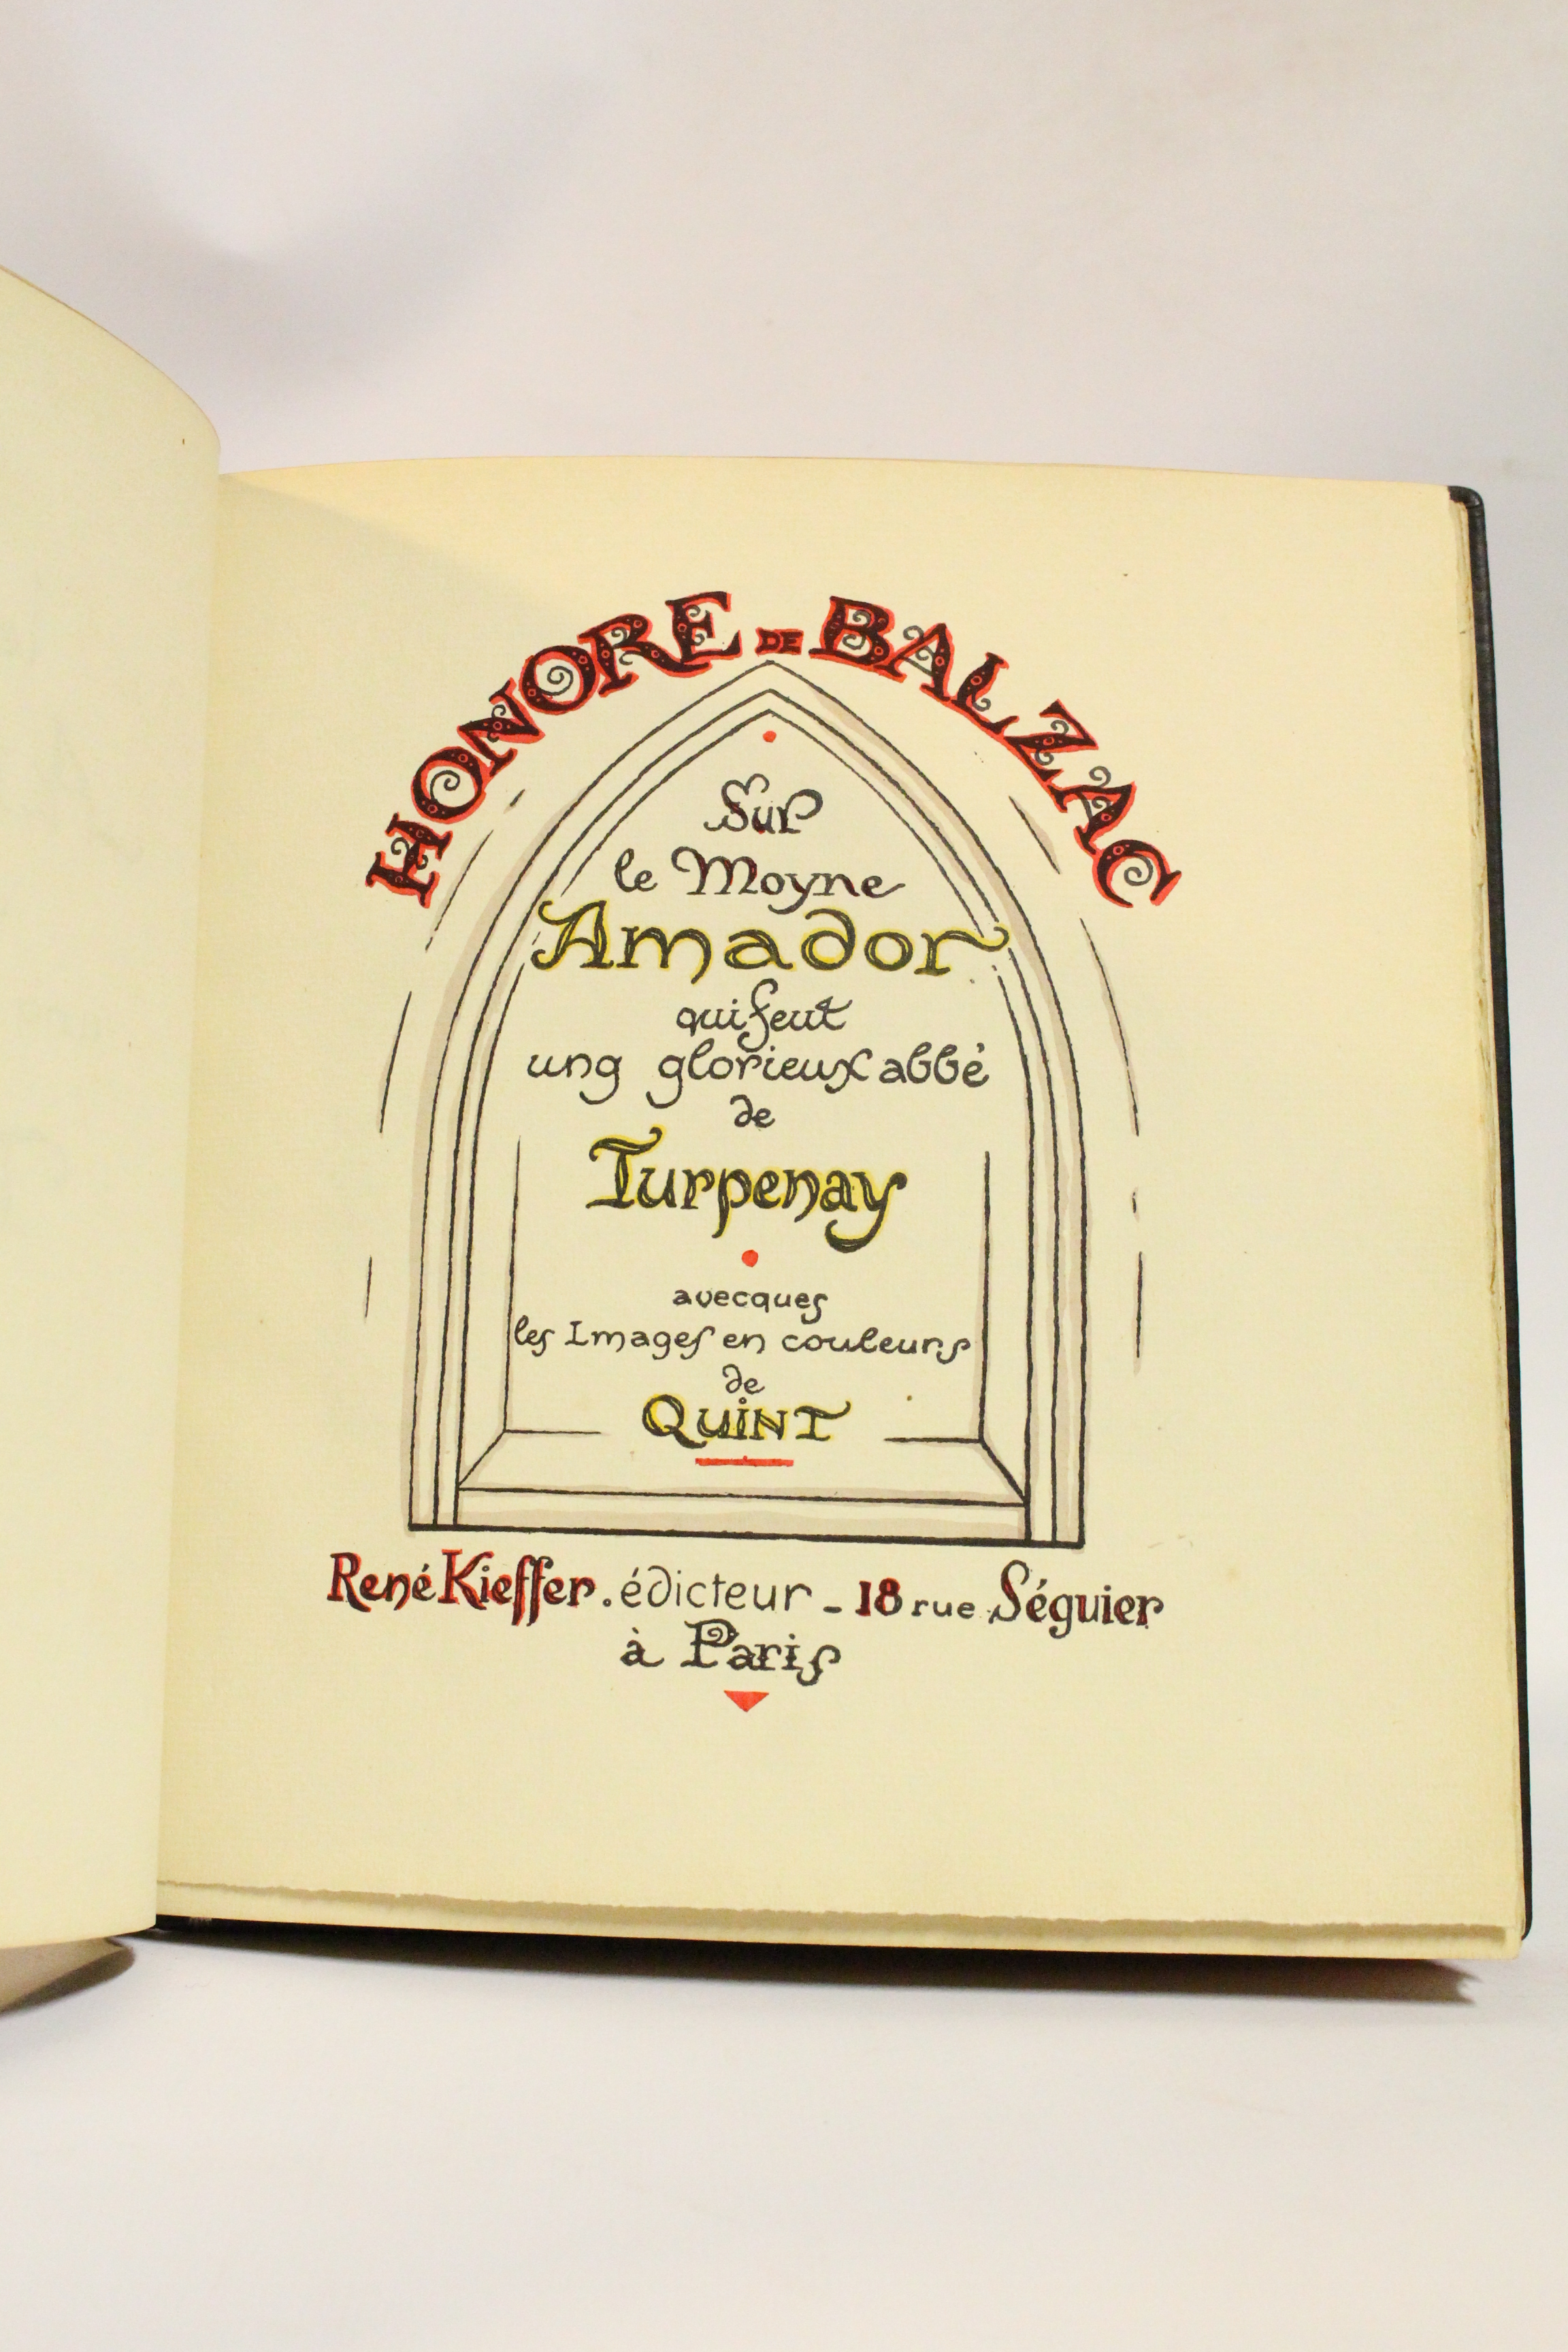 HONORE DE BALZAC
Sur
le Moyne
Amador
qui feut
ung glorieux abbé
de
Turpenay
avecques
les Images en couleurs
de
QUINT
René Kieffer. édicteur - 18 rue Séguier
à Paris